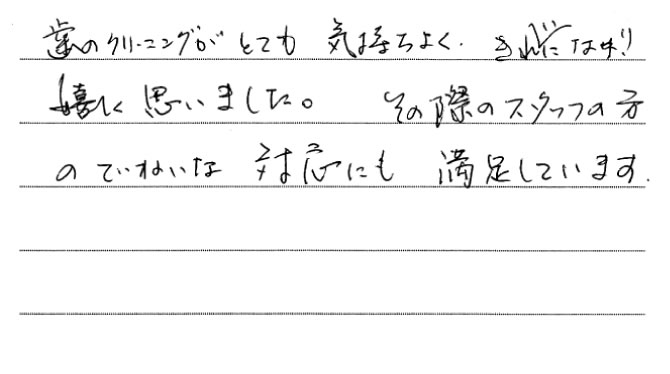 歯のクリーニングがとても 気持ちよく. きれいになり
嬉しく 思いました。 その際のスタッフの方
のていねいな 対応にも 満足しています.